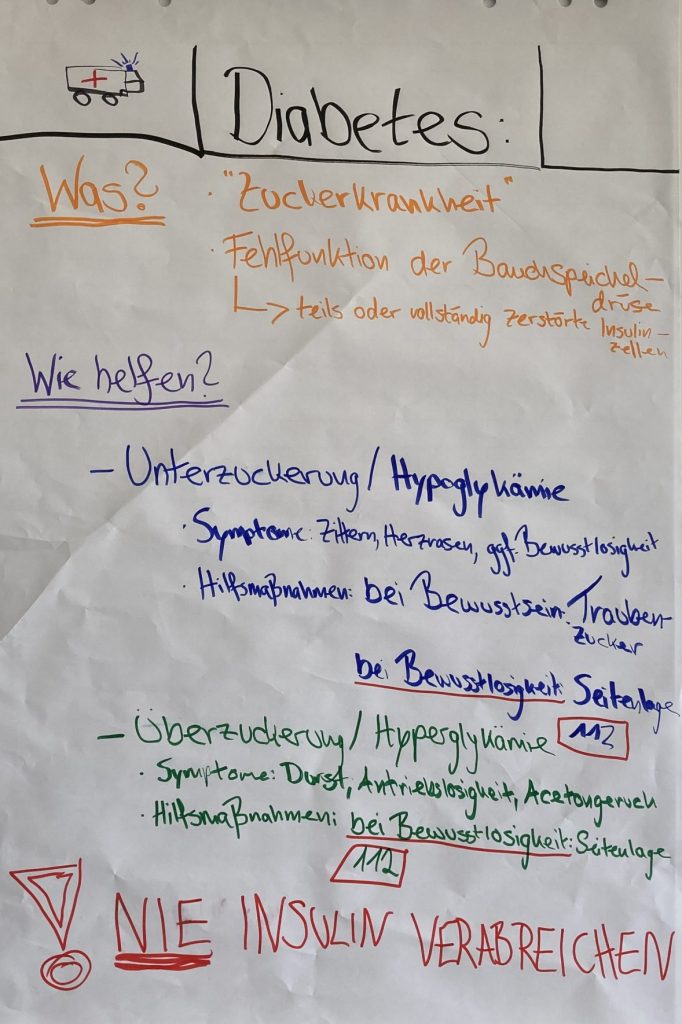 Diabetes:
Was? · "Zuckerkrankheit"
· Fehlfunktion der Bauchspeichel-
drüse
↳ teils oder vollständig zerstörte Insulin-
zellen
Wie helfen?
– Unterzuckerung / Hypoglykämie
· Symptome: Zittern, Herzrasen, ggf. Bewusstlosigkeit
· Hilfsmaßnahmen: bei Bewusstsein: Trauben-
zucker
bei Bewusstlosigkeit: Seitenlage
112
– Überzuckerung / Hyperglykämie
· Symptome: Durst, Antriebslosigkeit, Acetongeruch
· Hilfsmaßnahmen: bei Bewusstlosigkeit: Seitenlage
112
! NIE INSULIN VERABREICHEN